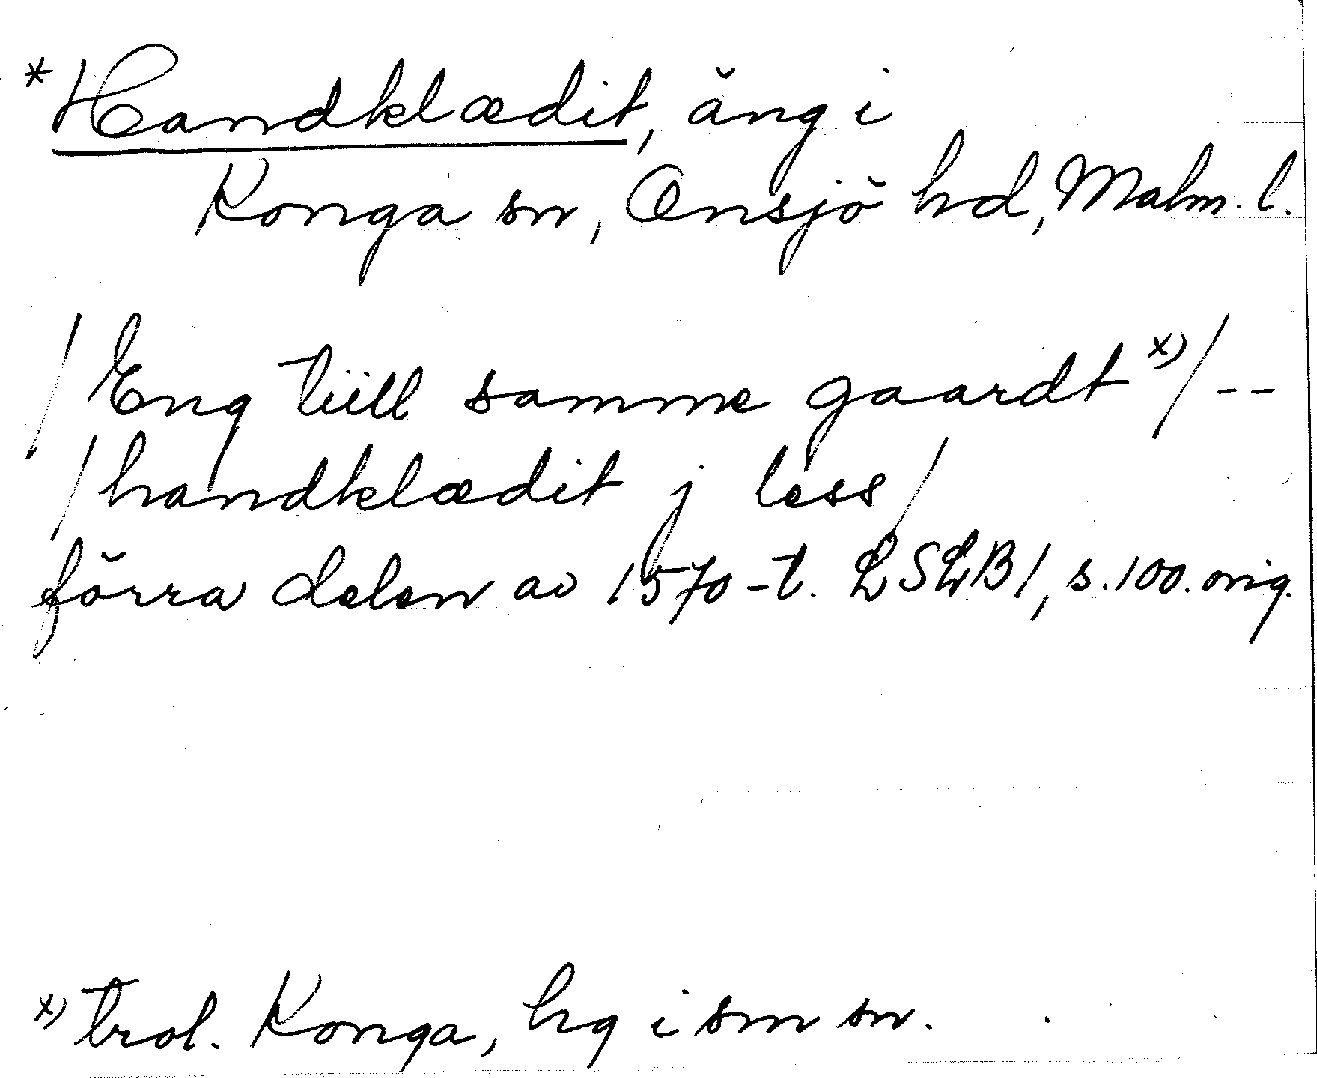 *Handklædit, äng i
Konga sn, Onsjö hd, Malm. l.
/Eng tiill samme gaardt x)/ --
/handklædit j less/
förra delen av 1570-t. LSLB1, s. 100. orig.
x) trol. Konga, hg i sm sn.